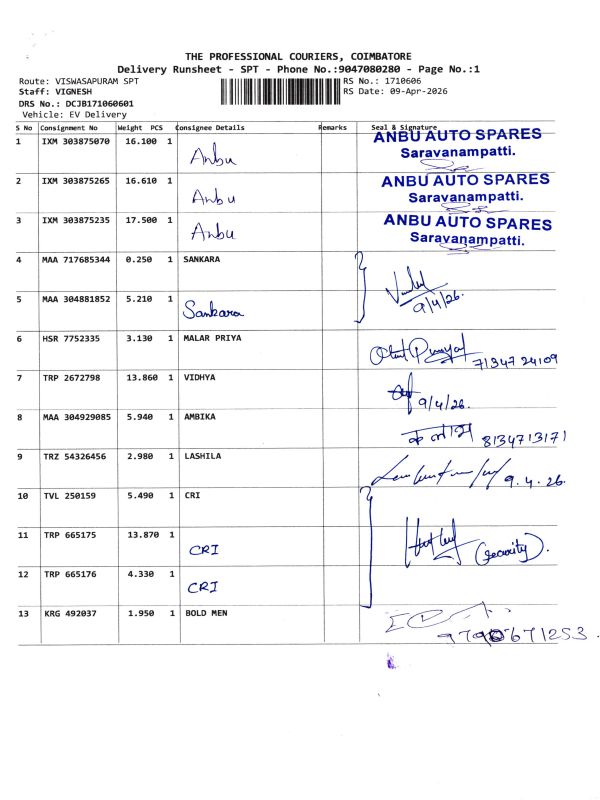 THE PROFESSIONAL COURIERS, COIMBATORE
Delivery Runsheet - SPT - Phone No.:9047080280 - Page No.:1
Route: VISWASAPURAM SPT RS No.: 1710606
Staff: VIGNESH RS Date: 09-Apr-2026
DRS No.: DCJB171060601
Vehicle: EV Delivery
S No Consignment No Weight PCS Consignee Details Remarks Seal & Signature
1 IXM 303875070 16.100 1 Anbu ANBU AUTO SPARES
Saravanampatti.
2 IXM 303875265 16.610 1 Anbu ANBU AUTO SPARES
Saravanampatti.
3 IXM 303875235 17.500 1 Anbu ANBU AUTO SPARES
Saravanampatti.
4 MAA 717685344 0.250 1 SANKARA
5 MAA 304881852 5.210 1 Sankara 9/4/26.
6 HSR 7752335 3.130 1 MALAR PRIYA 71347 24109
7 TRP 2672798 13.860 1 VIDHYA 9/4/26.
8 MAA 304929085 5.940 1 AMBIKA 8134713171
9 TRZ 54326456 2.980 1 LASHILA 9.4.26.
10 TVL 250159 5.490 1 CRI
11 TRP 665175 13.870 1 CRI (security).
12 TRP 665176 4.330 1 CRI
13 KRG 492037 1.950 1 BOLD MEN
9790671253